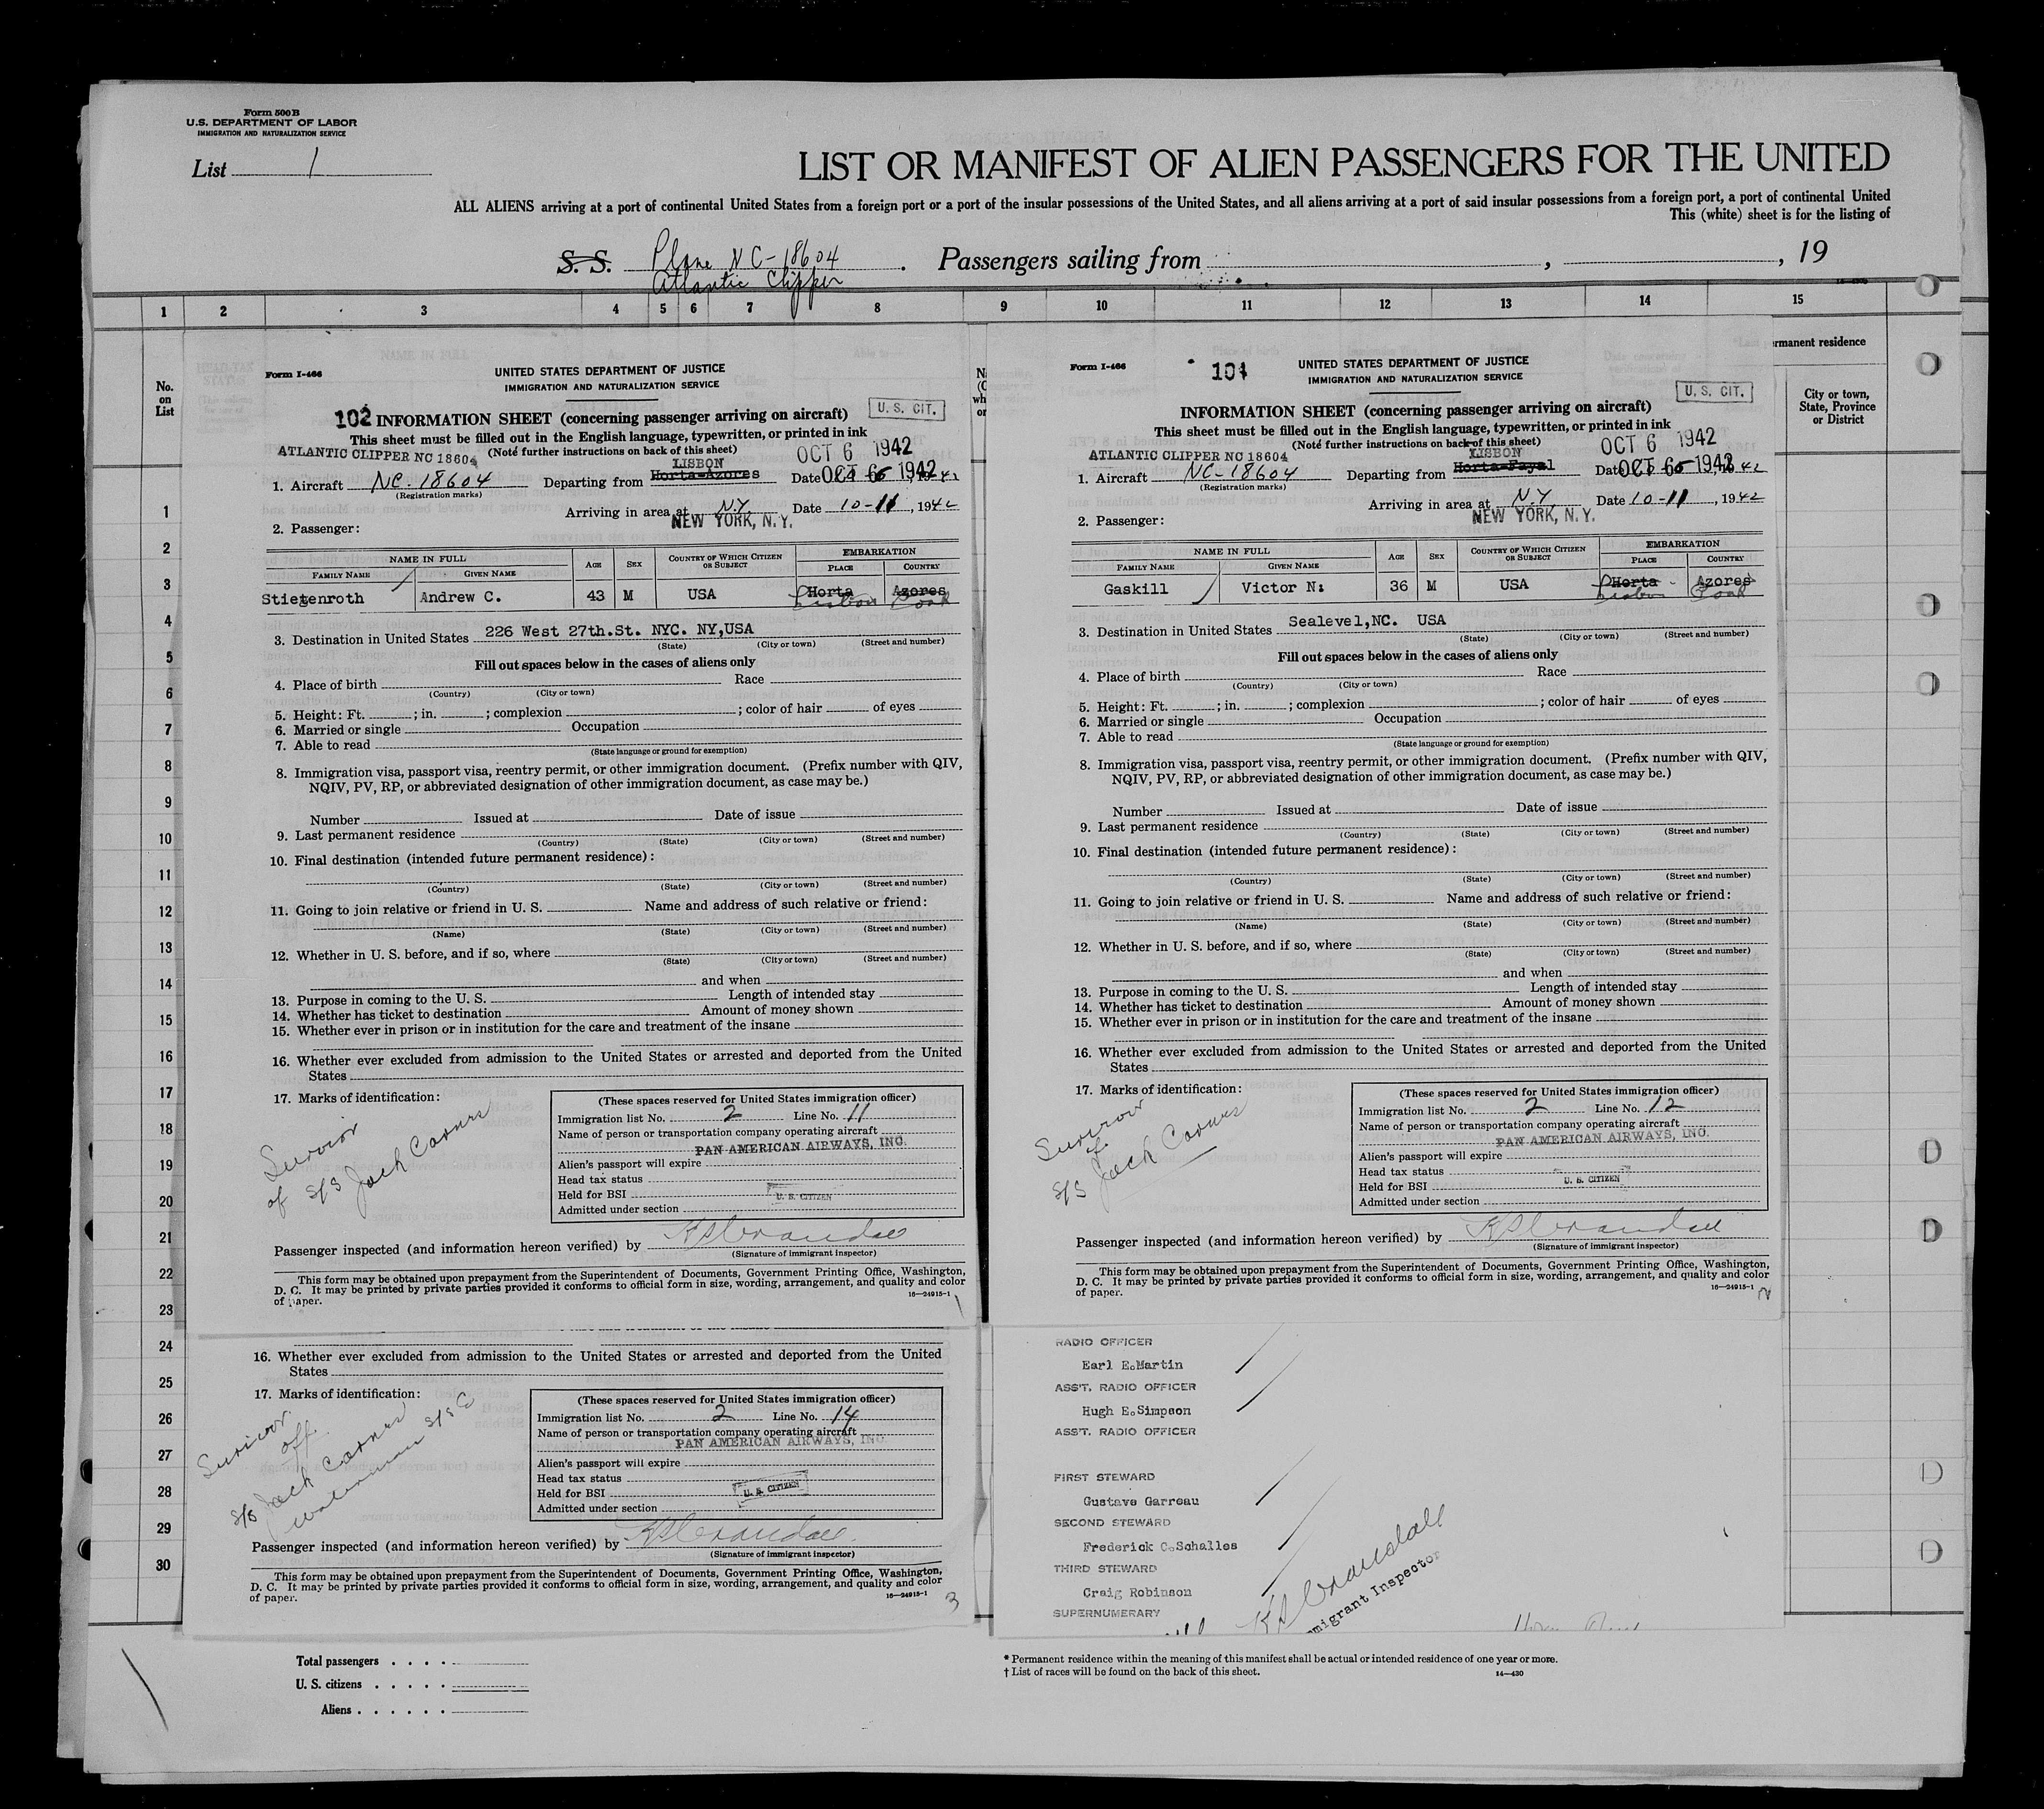 Form 500B
U.S. DEPARTMENT OF LABOR
IMMIGRATION AND NATURALIZATION SERVICE
List 1
LIST OR MANIFEST OF ALIEN PASSENGERS FOR THE UNITED
ALL ALIENS arriving at a port of continental United States from a foreign port or a port of the insular possessions of the United States, and all aliens arriving at a port of said insular possessions from a foreign port, a port of continental United
This (white) sheet is for the listing of
S. S. Plane NC-18604 . Passengers sailing from , , 19
Atlantic Clipper
1 2 3 4 5 6 7 8 9 10 11 12 13 14 15
No. on List
1
2
3
4
5
6
7
8
9
10
11
12
13
14
15
16
17
18
19
20
21
22
23
24
25
26
27
28
29
30
rmanent residence
City or town,
State, Province
or District
Form I-466
UNITED STATES DEPARTMENT OF JUSTICE
IMMIGRATION AND NATURALIZATION SERVICE
U. S. CIT.
102 INFORMATION SHEET (concerning passenger arriving on aircraft)
This sheet must be filled out in the English language, typewritten, or printed in ink
ATLANTIC CLIPPER NC 18604 (Note further instructions on back of this sheet) OCT 6 1942
LISBON
1. Aircraft NC-18604 Departing from Horta-Azores Date OCT 6 1942
(Registration marks)
Arriving in area at N.Y. Date 10-11, 1942
NEW YORK, N.Y.
2. Passenger:
NAME IN FULL
FAMILY NAME GIVEN NAME AGE SEX COUNTRY OF WHICH CITIZEN OR SUBJECT EMBARKATION PLACE COUNTRY
Stietenroth Andrew C. 43 M USA Horta Azores
Lisbon Port
3. Destination in United States 226 West 27th.St. NYC. NY,USA
(State) (City or town) (Street and number)
Fill out spaces below in the cases of aliens only
4. Place of birth Race
(Country) (City or town)
5. Height: Ft. ; in. ; complexion ; color of hair of eyes
6. Married or single Occupation
7. Able to read
(State language or ground for exemption)
8. Immigration visa, passport visa, reentry permit, or other immigration document. (Prefix number with QIV,
NQIV, PV, RP, or abbreviated designation of other immigration document, as case may be.)
Number Issued at Date of issue
9. Last permanent residence
(Country) (State) (City or town) (Street and number)
10. Final destination (intended future permanent residence):
(Country) (State) (City or town) (Street and number)
11. Going to join relative or friend in U. S. Name and address of such relative or friend:
(Name) (State) (City or town) (Street and number)
12. Whether in U. S. before, and if so, where
(State) (City or town) (Street and number)
and when
13. Purpose in coming to the U. S. Length of intended stay
14. Whether has ticket to destination Amount of money shown
15. Whether ever in prison or in institution for the care and treatment of the insane
16. Whether ever excluded from admission to the United States or arrested and deported from the United
States
17. Marks of identification:
Survivor
of S/S Jack Carnes
(These spaces reserved for United States immigration officer)
Immigration list No. 2 Line No. 11
Name of person or transportation company operating aircraft
PAN AMERICAN AIRWAYS, INC.
Alien's passport will expire
Head tax status
Held for BSI U. S. CITIZEN
Admitted under section
Passenger inspected (and information hereon verified) by KS Crandall
(Signature of immigrant inspector)
This form may be obtained upon prepayment from the Superintendent of Documents, Government Printing Office, Washington,
D. C. It may be printed by private parties provided it conforms to official form in size, wording, arrangement, and quality and color
of paper. 16—24915-1
1
Form I-466
104
UNITED STATES DEPARTMENT OF JUSTICE
IMMIGRATION AND NATURALIZATION SERVICE
U. S. CIT.
INFORMATION SHEET (concerning passenger arriving on aircraft)
This sheet must be filled out in the English language, typewritten, or printed in ink
(Note further instructions on back of this sheet) OCT 6 1942
ATLANTIC CLIPPER NC 18604 LISBON
1. Aircraft NC-18604 Departing from Horta-Fayal Date OCT 6 1942
(Registration marks)
Arriving in area at N.Y. Date 10-11, 1942
NEW YORK, N.Y.
2. Passenger:
NAME IN FULL
FAMILY NAME GIVEN NAME AGE SEX COUNTRY OF WHICH CITIZEN OR SUBJECT EMBARKATION PLACE COUNTRY
Gaskill Victor N. 36 M USA Horta Azores
Lisbon Port
3. Destination in United States Sealevel,NC. USA
(State) (City or town) (Street and number)
Fill out spaces below in the cases of aliens only
4. Place of birth Race
(Country) (City or town)
5. Height: Ft. ; in. ; complexion ; color of hair of eyes
6. Married or single Occupation
7. Able to read
(State language or ground for exemption)
8. Immigration visa, passport visa, reentry permit, or other immigration document. (Prefix number with QIV,
NQIV, PV, RP, or abbreviated designation of other immigration document, as case may be.)
Number Issued at Date of issue
9. Last permanent residence
(Country) (State) (City or town) (Street and number)
10. Final destination (intended future permanent residence):
(Country) (State) (City or town) (Street and number)
11. Going to join relative or friend in U. S. Name and address of such relative or friend:
(Name) (State) (City or town) (Street and number)
12. Whether in U. S. before, and if so, where
(State) (City or town) (Street and number)
and when
13. Purpose in coming to the U. S. Length of intended stay
14. Whether has ticket to destination Amount of money shown
15. Whether ever in prison or in institution for the care and treatment of the insane
16. Whether ever excluded from admission to the United States or arrested and deported from the United
States
17. Marks of identification:
Survivor
of
S/S Jack Carnes
(These spaces reserved for United States immigration officer)
Immigration list No. 2 Line No. 12
Name of person or transportation company operating aircraft
PAN AMERICAN AIRWAYS, INC.
Alien's passport will expire
Head tax status
Held for BSI U. S. CITIZEN
Admitted under section
Passenger inspected (and information hereon verified) by KS Crandall
(Signature of immigrant inspector)
This form may be obtained upon prepayment from the Superintendent of Documents, Government Printing Office, Washington,
D. C. It may be printed by private parties provided it conforms to official form in size, wording, arrangement, and quality and color
of paper. 16—24915-1
2
16. Whether ever excluded from admission to the United States or arrested and deported from the United
States
17. Marks of identification:
Survivor
off
S/S Jack Carnes
(These spaces reserved for United States immigration officer)
Immigration list No. 2 Line No. 14
Name of person or transportation company operating aircraft
PAN AMERICAN AIRWAYS, INC
Alien's passport will expire
Head tax status
Held for BSI U. S. CITIZEN
Admitted under section
Passenger inspected (and information hereon verified) by KS Crandall
(Signature of immigrant inspector)
This form may be obtained upon prepayment from the Superintendent of Documents, Government Printing Office, Washington,
D. C. It may be printed by private parties provided it conforms to official form in size, wording, arrangement, and quality and color
of paper. 16—24915-1
3
RADIO OFFICER
Earl E.Martin
ASS'T. RADIO OFFICER
Hugh E.Simpson
ASS'T. RADIO OFFICER
FIRST STEWARD
Gustave Garreau
SECOND STEWARD
Frederick C.Schalles
THIRD STEWARD
Craig Robinson
SUPERNUMERARY
KS Crandall
mmigrant Inspector
Total passengers . . . .
U. S. citizens . . . . .
Aliens . . . . . .
* Permanent residence within the meaning of this manifest shall be actual or intended residence of one year or more.
† List of races will be found on the back of this sheet. 14—430